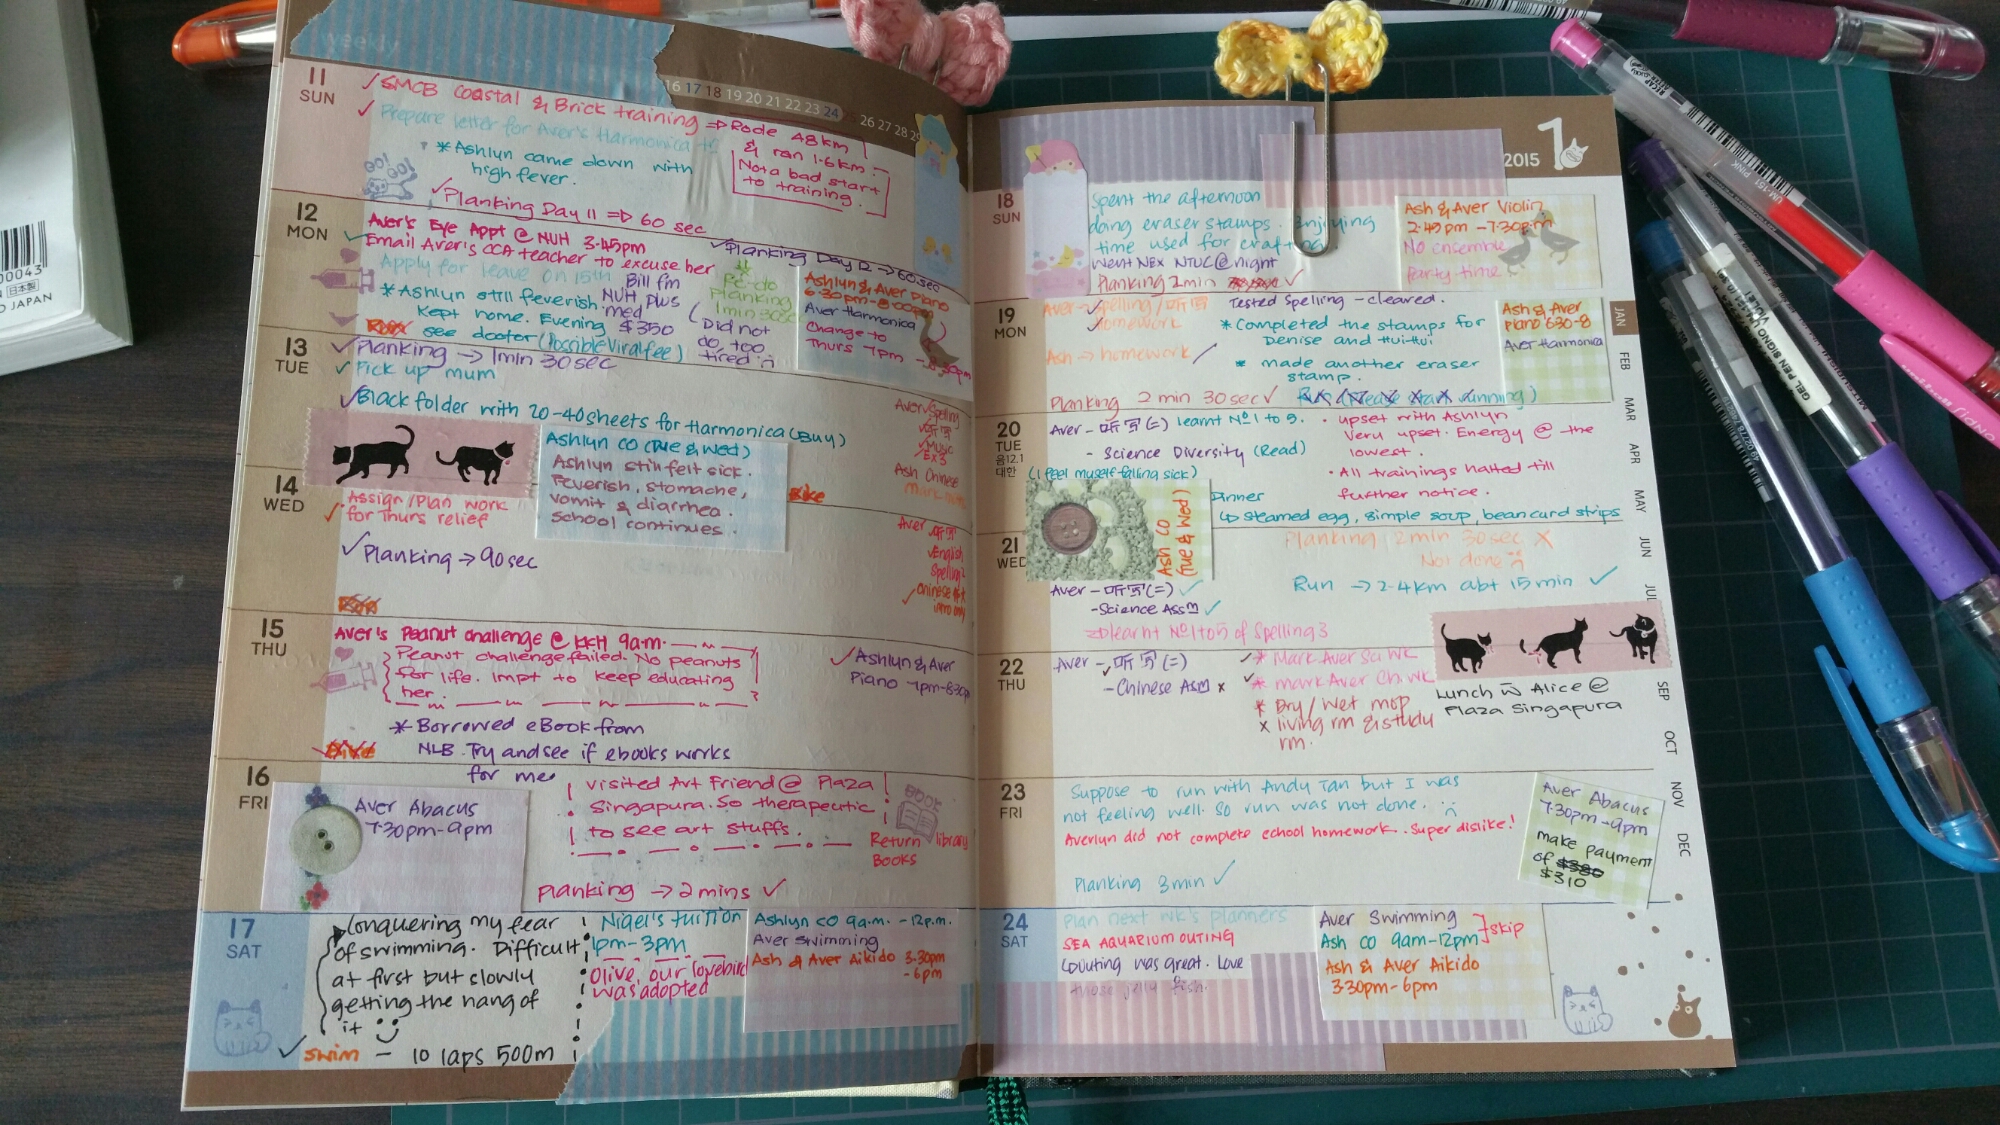 weekly
16 17 18 19 20 21 22 23 24
26 27 28 29
11
SUN
SMCB Coastal & Brick training ⇒ Rode 48km
& ran 1.6km.
Not a bad start
to training.
Prepare letter for Aver's Harmonica
* Ashlyn came down with
high fever.
Planking Day 11 ⇒ 60 sec
12
MON
Aver's Eye Appt @ NUH 3.45pm
Email Aver's CCA teacher to excuse her
Apply for leave on 15th
* Ashlyn still feverish.
Kept home. Evening
see doctor (Possible Viral fee)
Bill fm
NUH plus
med
$350
Planking Day 12 → 60sec
Re-do
planking
1min 30sec
(Did not
do, too
tired
Ashlyn & Aver piano
6.30pm-8.00pm
Aver Harmonica
Change to
Thurs 7pm - 8.30pm
13
TUE
Planking → 1min 30sec
Pick up mum
Black folder with 20-40 sheets for Harmonica (Buy)
Ashlyn CO (Tue & Wed)
Ashlyn still felt sick.
Feverish, stomache,
vomit & diarrhea.
School continues.
Aver Spelling
听写
Music
Ex 3
Ash Chinese
14
WED
Assign/Plan work
for Thurs relief
Planking → 90sec
Bike
Run
Aver 听写
English
Spelling 2
Chinese
15
THU
Aver's Peanut challenge @ KKH 9a.m.
Peanut challenge failed. No peanuts
for life. Impt to keep educating
her.
Ashlyn & Aver
Piano 7pm-8.30pm
* Borrowed eBook from
NLB. Try and see if ebooks works
for me
16
FRI
Aver Abacus
7.30pm-9pm
visited Art Friend @ Plaza
Singapura. So therapeutic
to see art stuffs.
BOOK
Return library
Books
Planking → 2 mins
17
SAT
Conquering my fear
of swimming. Difficult
at first but slowly
getting the hang of
it
swim - 10 laps 500m
Nigel's tuition
1pm-3pm
Olive, our lovebird
was adopted
Ashlyn CO 9a.m. - 12p.m.
Aver Swimming
Ash & Aver Aikido 3.30pm
- 6pm
2015 1
18
SUN
Spent the afternoon
doing eraser stamps. Enjoying
time used for crafting
Went NEX NTUC @ night
Planking 2min
Ash & Aver Violin
2.45pm - 7.30pm
No ensemble
Party time
19
MON
Aver - Spelling / 听写
Homework
Ash → homework
Tested Spelling - cleared.
* Completed the stamps for
Denise and HuiHui
* made another eraser
stamp.
Planking 2 min 30sec
Run (Please start running)
Ash & Aver
piano 630-8
Aver Harmonica
20
TUE
음12.1
대한
Aver - 听写(二) learnt No 1 to 5.
- Science Diversity (Read)
(I feel myself falling sick)
• upset with Ashlyn
Very upset. Energy @ the
lowest.
• All trainings halted till
further notice.
Dinner
↳ steamed egg, simple soup, beancurd strips
Ash CO
(Tue & Wed)
21
WED
Planking 2min 30 sec X
Not done
Run → 2.4km abt 15min
Aver - 听写(二)
- Science Assm
⇒ learnt No 1 to 5 of Spelling 3
22
THU
Aver - 听写(二)
- Chinese Asm x
* Mark Aver Sci Wk
* mark Aver Ch wk
* Dry/Wet mop
x living rm & study
rm.
Lunch w Alice @
Plaza Singapura
23
FRI
Suppose to run with Andy Tan but I was
not feeling well. So run was not done.
Averlyn did not complete school homework. Super dislike!
Planking 3min
Aver Abacus
7.30pm - 9pm
make payment
of $380
$310
24
SAT
Plan next wk's planners
SEA AQUARIUM OUTING
↳ Outing was great. Love
those jelly fish.
Aver Swimming
Ash CO 9am-12pm
skip
Ash & Aver Aikido
3.30pm-6pm
JAN
FEB
MAR
APR
MAY
JUN
JUL
SEP
OCT
NOV
DEC
0043
日本製
JAPAN
UM-151 PINK
GEL PEN SIGNO